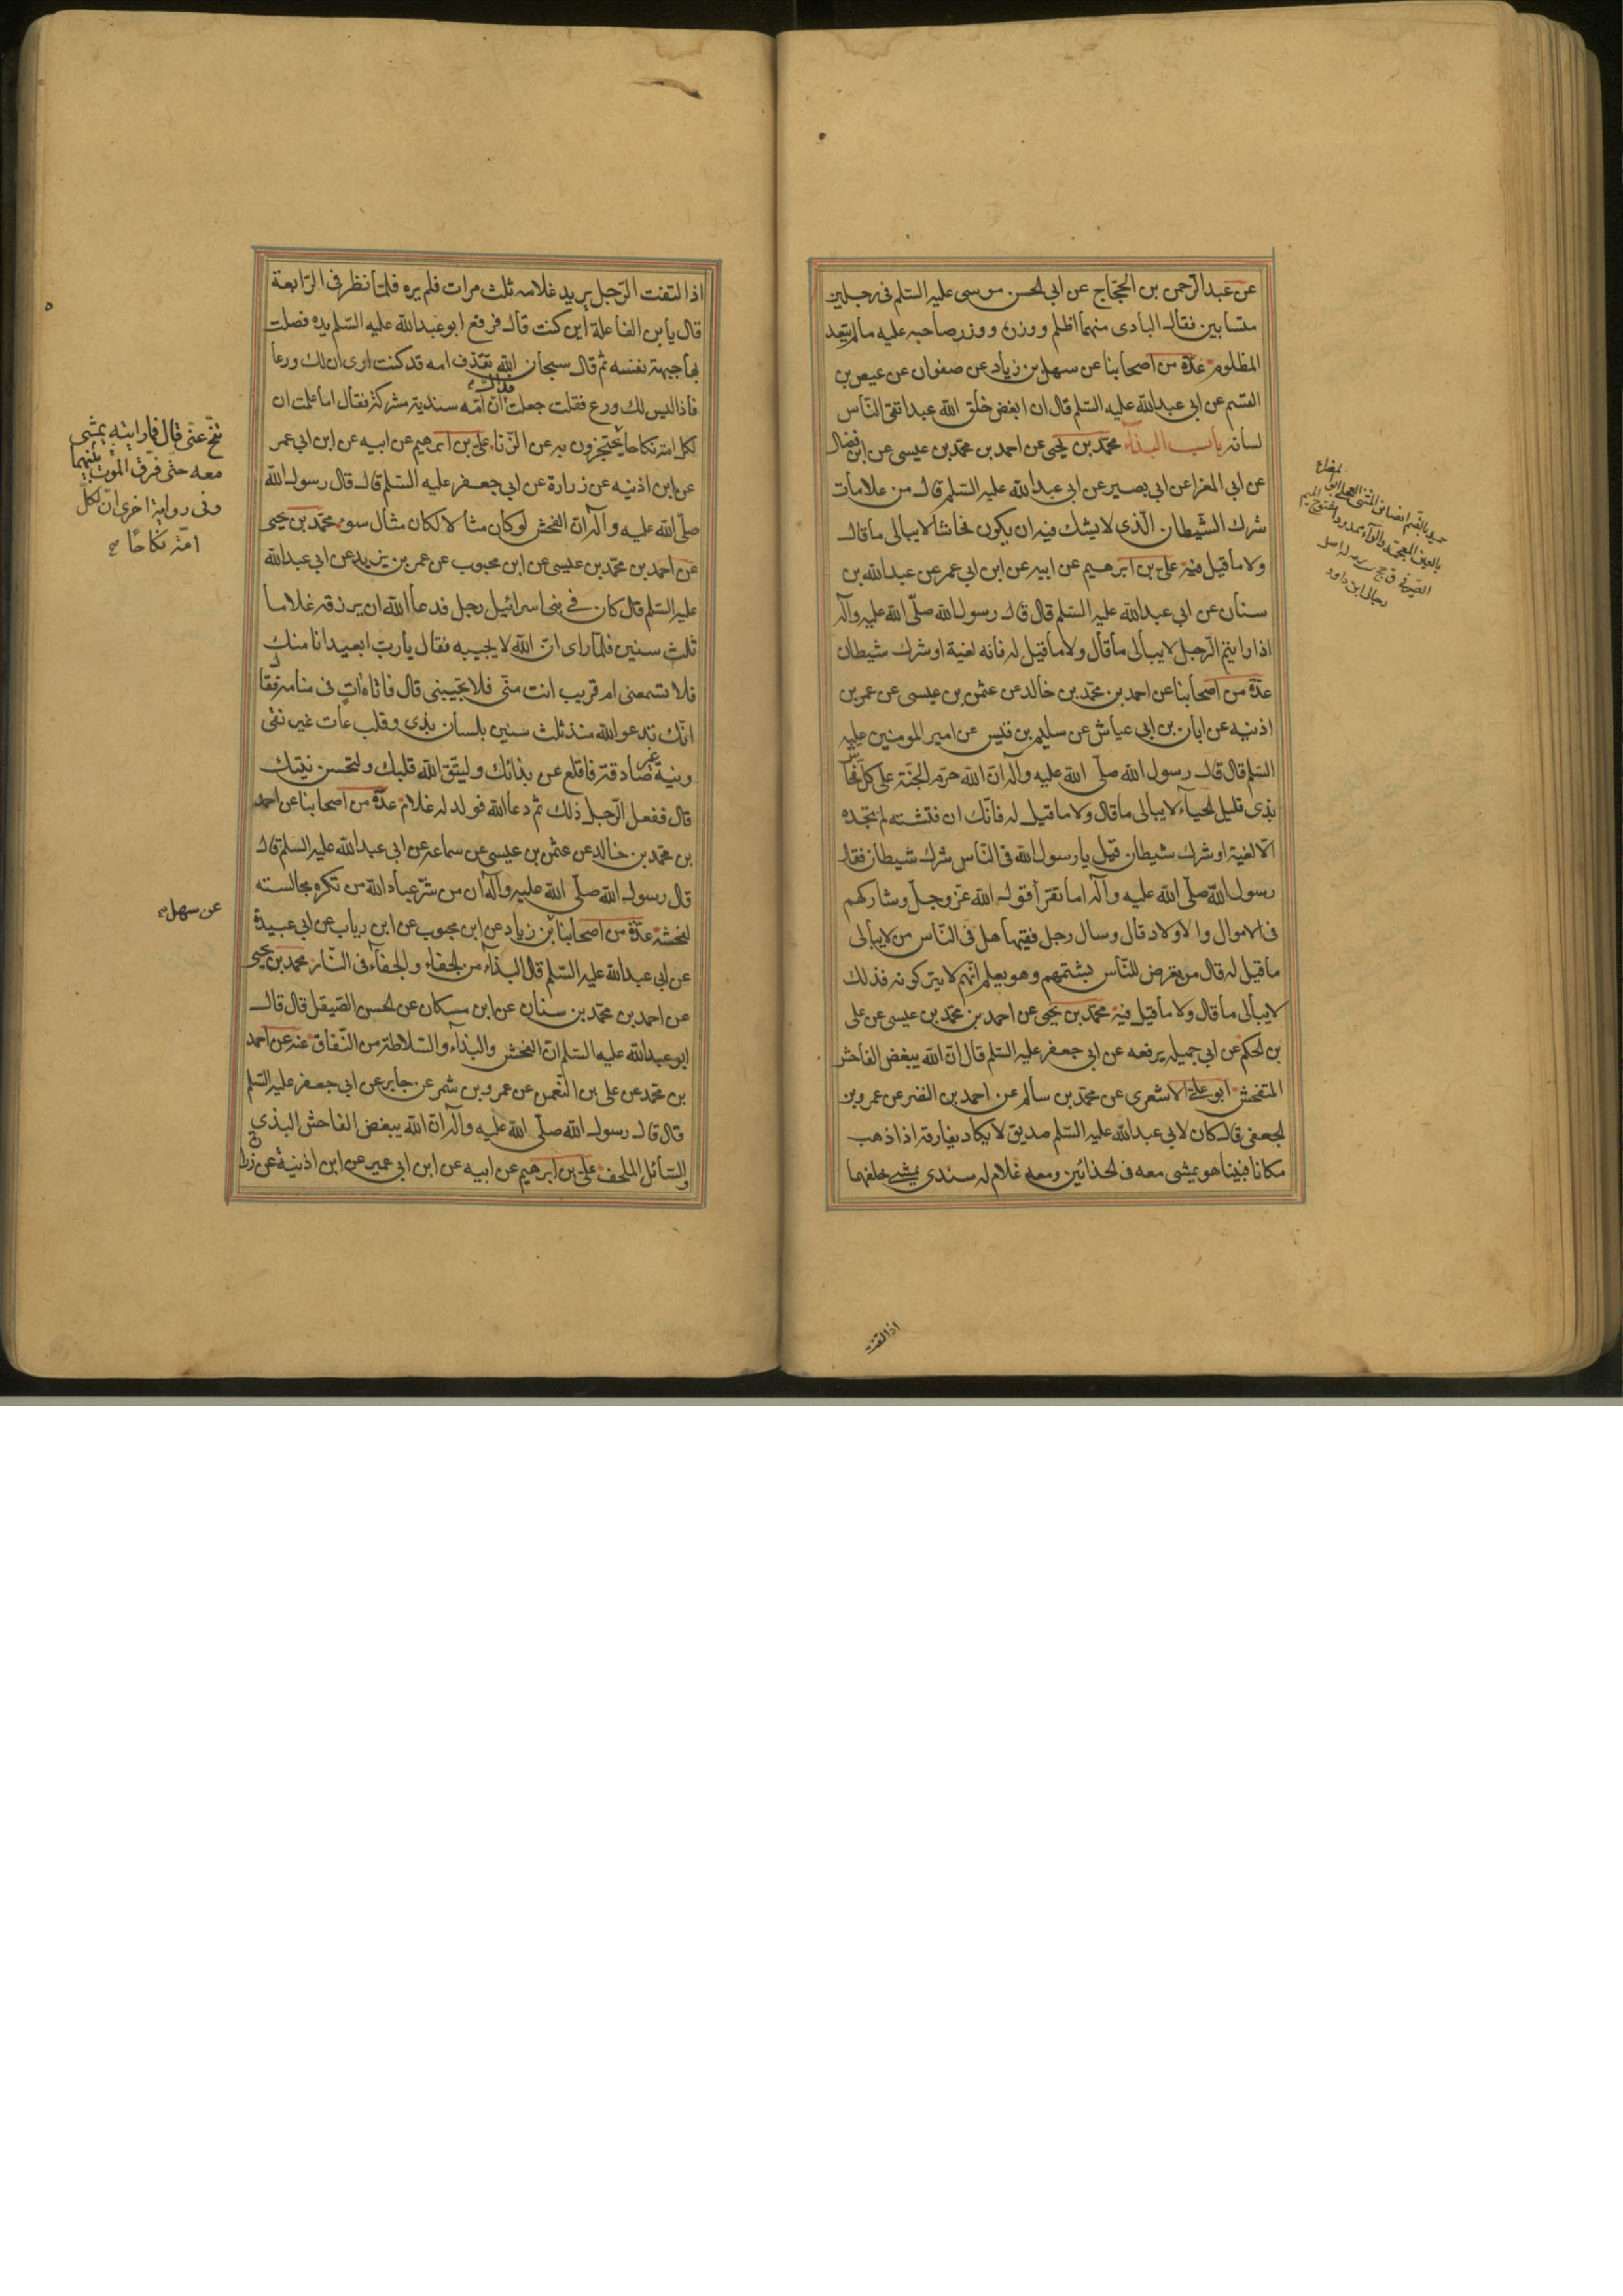 عن عبد الرّحمن بن الحجّاج عن ابي الحسن موسى عليه السّلم فى رجلين
متسابين فقال البادى منهما اظلم ووزره ووزر صاحبه عليه ما لم يتعد
المظلوم عدّة من اصحابنا عن سهل بن زياد عن صفوان عن عيص بن
القسم عن ابي عبد الله عليه السّلم قال ان ابغض خلق الله عبد اتقى النّاس
لسانه باب البذاء محمّد بن يحيى عن احمد بن محمّد بن عيسى عن ابن فضال
عن ابي المغرا عن ابي بصير عن ابي عبد الله عليه السّلم قال من علامات
شرك الشّيطان الّذى لا يشك فيه ان يكون فحاشا لا يبالى ما قال
ولا ما قيل فيه على بن ابرهيم عن ابيه عن ابن ابي عمر عن عبد الله بن
سنان عن ابي عبد الله عليه السّلم قال قال رسول الله صلّى الله عليه وآله
اذا رايتم الرّجل لا يبالى ما قال ولا ما قيل له فانه لغية او شرك شيطان
عدّة من اصحابنا عن احمد بن محمّد بن خالد عن عثمن بن عيسى عن عمر بن
اذنيه عن ابان بن ابي عياش عن سليم بن قيس عن امير المومنين عليه
السّلم قال قال رسول الله صلّى الله عليه وآله انّ الله حرّم الجنّة على كلّ فحّاش
بذى قليل الحياء لا يبالى ما قال ولا ما قيل له فانّك ان فتشته لم تجده
الّا لغية او شرك شيطان قيل يا رسول الله فى النّاس شرك شيطان فقال
رسول الله صلّى الله عليه وآله اما تقرأ قول الله عزّ وجلّ وشاركهم
فى الاموال والاولاد قال وسال رجل فقيها هل فى النّاس من لا يبالى
ما قيل له قال من يعرض للنّاس يشتمهم وهو يعلم انّهم لا يتركونه فذلك
لا يبالى ما قال ولا ما قيل فيه محمّد بن يحيى عن احمد بن محمّد بن عيسى عن على
بن الحكم عن ابي جميله يرفعه عن ابي جعفر عليه السّلم قال انّ الله يبغض الفاحش
المتفحش ابو على الاشعرى عن محمّد بن سالم عن احمد بن النضر عن عمرو بن
الجعفى قال كان لابي عبد الله عليه السّلم صديق لا يكاد يفارقه اذا ذهب
مكانا فبينا هو يمشى معه فى الحذائين ومعه غلام له سندى يمشى خلفهما
اذا التفت
اذا التفت الرّجل يريد غلامه ثلث مرات فلم يره فلمّا نظر فى الرّابعة
قال يا بن الفاعلة اين كنت قال فرفع ابو عبد الله عليه السّلم يده فصك
بها جبهة نفسه ثم قال سبحان الله تقذف امه قد كنت ارى ان لك ورعا
فاذا ليس لك ورع فقلت جعلت فداك ان امّه سندية مشركة فقال اما علمت ان
لكل امة نكاحا يحتجزون به عن الزّنا على بن ابرهيم عن ابيه عن ابن ابي عمر
عن ابن اذنيه عن زرارة عن ابي جعفر عليه السّلم قال قال رسول الله
صلّى الله عليه وآله انّ الفحش لو كان مثالا لكان مثال سوء محمّد بن يحيى
عن احمد بن محمّد بن عليسى عن ابن محبوب عن عمر بن يزيد عن ابي عبد الله
عليه السّلم قال كان فى بنى اسرائيل رجل فدعا الله ان يرزقه غلاما
ثلث سنين فلمّا راى انّ الله لا يجيبه فقال يا ربّ ابعيد انا منك
فلا تسمعنى ام قريب انت منّى فلا تجيبنى قال فاتاه آتٍ فى منامه فقال
انّك تدعو الله منذ ثلث سنين بلسان بذى وقلب عات غير نقى
ونيّة غير صادقة فاقلع عن بذائك وليتّق الله قلبك ولتحسن نيتك
قال ففعل الرّجل ذلك ثم دعا الله فولد له غلام عدّة من اصحابنا عن احمد
بن محمّد بن خالد عن عثمن بن عيسى عن سماعه عن ابي عبد الله عليه السّلم قال
قال رسول الله صلّى الله عليه وآله ان من شرّ عباد الله من تكره مجالسته
لفحشه عدّة من اصحابنا بن زياد عن ابن محبوب عن ابن رياب عن ابي عبيدة
عن ابي عبد الله عليه السّلم قال البذاء من الجفاء والجفاء فى النّار محمّد بن يحيى
عن احمد بن محمّد بن سنان عن ابن مسكان عن الحسن الصّيقل قال قال
ابو عبد الله عليه السّلم انّ الفحش والبذاء والسّلاطة من النّفاق عنه عن احمد
بن محمّد عن على بن النّعمن عن عمرو بن شمر عن جابر عن ابي جعفر عليه السّلم
قال قال رسول الله صلّى الله عليه وآله انّ الله يبغض الفاحش البذي
والسّائل الملحف على بن ابرهيم عن ابيه عن ابن ابي عمير عن ابن اذنية عن زرارة
تنحّ عنّى قال فما رايته يمشى
معه حتّى فرّق الموت بينهما
وفى رواية اخرى انّ لكلّ
امّة نكاحًا
عن سهل